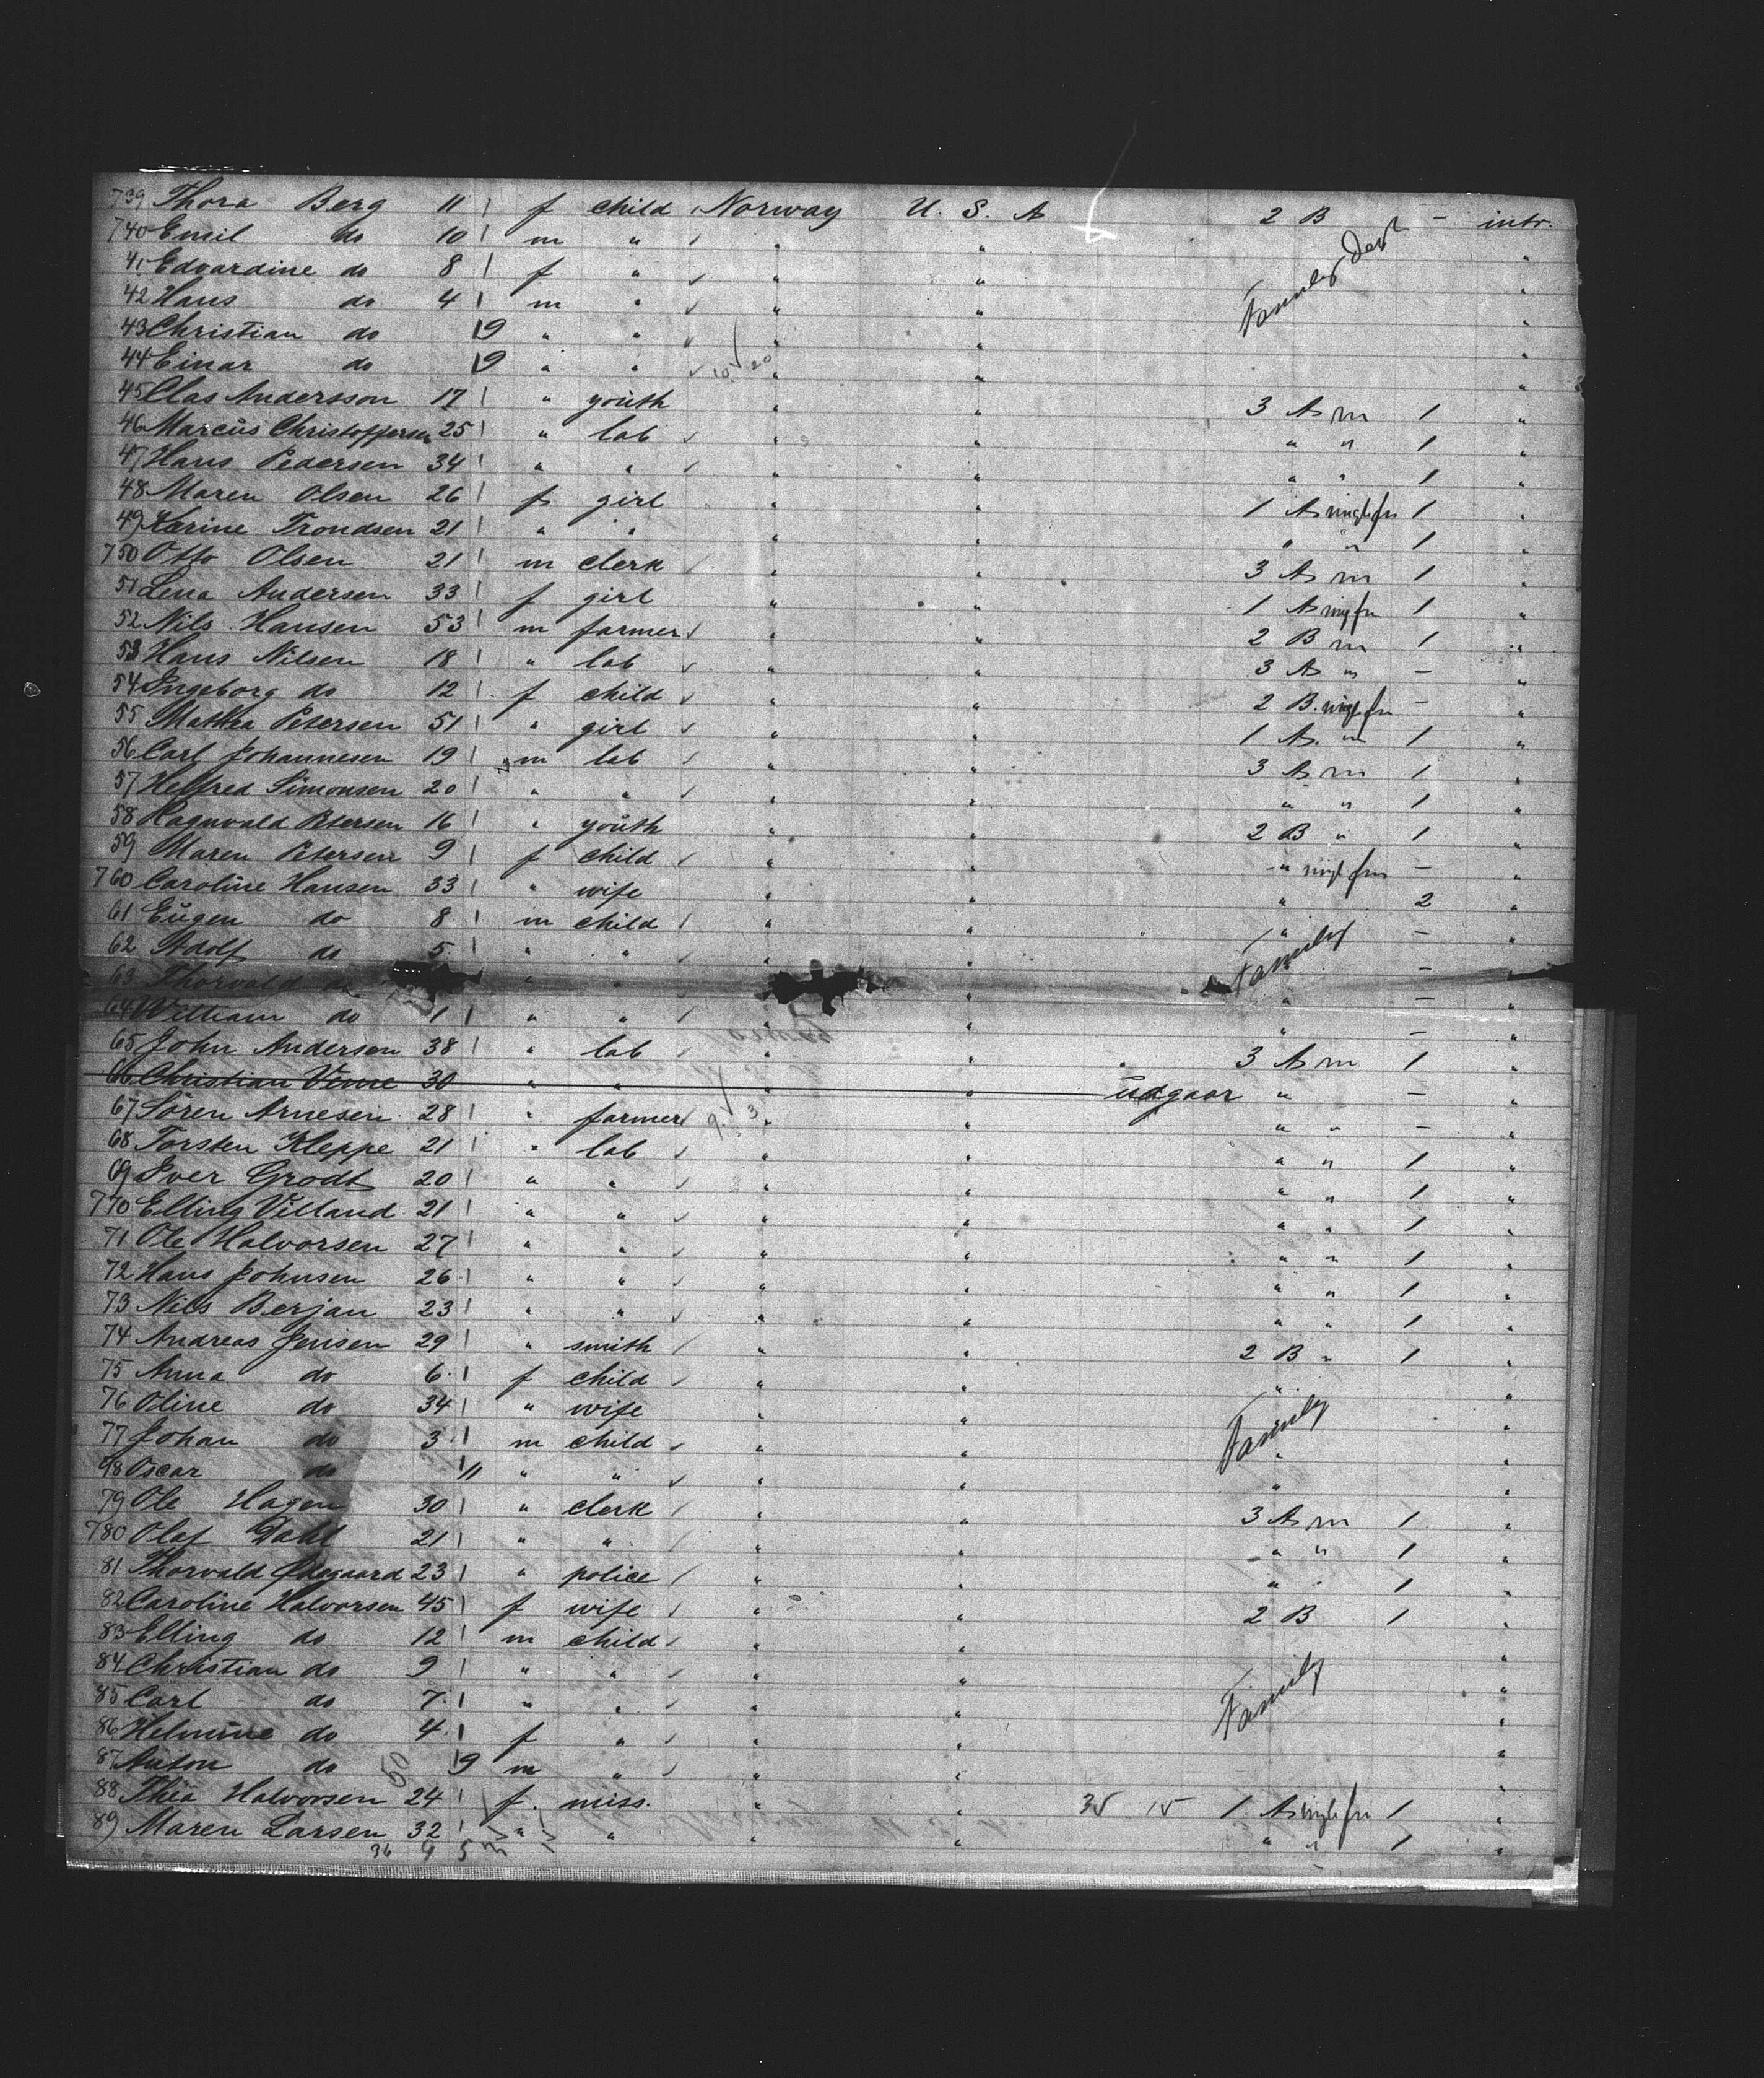 739 Thora Berg 11 f child Norway U. S. A 2 B - intr.
740 Emil do 10 m " " " "
41 Edvardine do 8 f " " " Family Dept "
42 Hans do 4 m " " " "
43 Christian do 9 " " " "
44 Einar do 9 " " " " "
45 Clas Andersson 17 " youth " " 3 A m 1 "
46 Marcus Christoffersen 25 " lab " " " " 1 "
47 Hans Pedersen 34 " " " " " " 1 "
48 Maren Olsen 26 f girl " " 1 A 1 "
49 Karine Trondsen 21 " " " " " " 1 "
750 Otto Olsen 21 m clerk " " 3 A m 1 "
51 Lena Andersen 33 f girl " " 1 A 1 "
52 Nils Hansen 53 m farmer " " 2 B m 1 "
53 Hans Nilsen 18 " lab " " 3 A " - "
54 Ingeborg do 12 f child " " 2 B. - "
55 Mattea Petersen 51 " girl " " 1 A. " 1 "
56 Carl Johannesen 19 m lab " " 3 A m 1 "
57 Helfred Simonsen 20 " " " " " " 1 "
58 Ragnvald Petersen 16 " youth " " 2 B " 1 "
59 Maren Petersen 9 f child " " " - "
760 Caroline Hansen 33 " wife " " " 2 "
61 Eugen do 8 m child " " " - "
62 Adolf do 5 " " " " Family - "
63 Thorvald do " " " " - "
64 William do 1 " " " " " - "
65 John Andersen 38 " lab " " 3 A m 1 "
66 Christian 30 " " " " udgaar " - "
67 Sören Arnesen 28 " farmer " " " " - "
68 Torsten Kleppe 21 " lab " " " " 1 "
69 Iver Grodt 20 " " " " " " 1 "
770 Elling Villand 21 " " " " " " 1 "
71 Ole Halvorsen 27 " " " " " " 1 "
72 Hans Johnsen 26 " " " " " " 1 "
73 Nils Berjan 23 " " " " " " 1 "
74 Andreas Jensen 29 " smith " " 2 B " 1 "
75 Anna do 6 f child " " " "
76 Oline do 34 " wife " " Family "
77 Johan do 3 m child " " " "
78 Oscar do 11 " " " " " "
79 Ole Hagen 30 " clerk " " 3 A m 1 "
780 Olaf Dahl 21 " " " " " " 1 "
81 Thorvald Ødegaard 23 " police " " " " 1 "
82 Caroline Halvorsen 45 f wife " " 2 B 1 "
83 Elling do 12 m child " " "
84 Christian do 9 " " " " "
85 Carl do 7 " " " " Family "
86 Helmine do 4 f " " " "
87 Anton do 9 m " " " "
88 Thea Halvorsen 24 f. miss. " " 35 15 1 A 1 "
89 Maren Larsen 32 " " " " " " 1 "